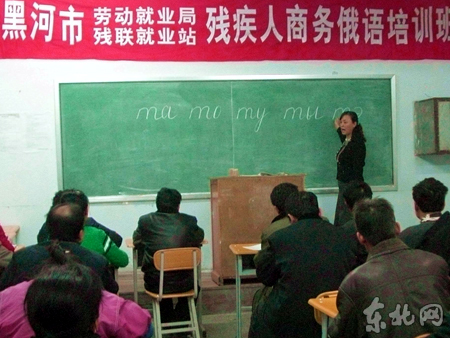 黑河市 劳动就业局 残联就业站 残疾人商务俄语培训班
та то ту ти
东北网